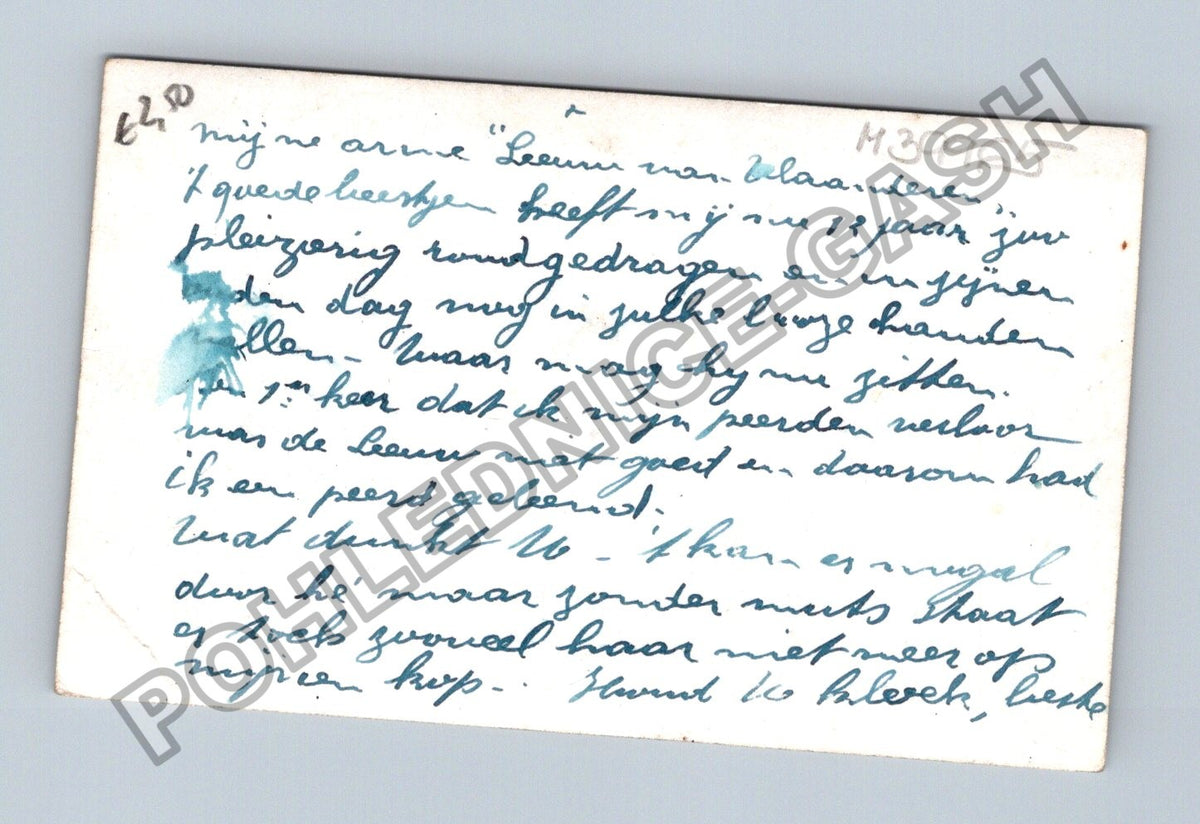 €2,50
M 39
mijne arme "Leeuw van Vlaanderen"
't goede beestjen heeft mij nu 13 jaar zoo
pleizerig rondgedragen en in zijnen
den dag nog in zulke booze handen
vallen - Waar mag hij nu zitten.
1en keer dat ik mijn peerden verloor
was de Leeuw niet goed en daarom had
ik een peerd geleend.
Wat dunkt U - 't kan er nogal
door hé maar zonder muts staat
er toch zooveel haar niet meer op
mijnen kop - Houd U kloek, beste
POHLEDNICE-GASH